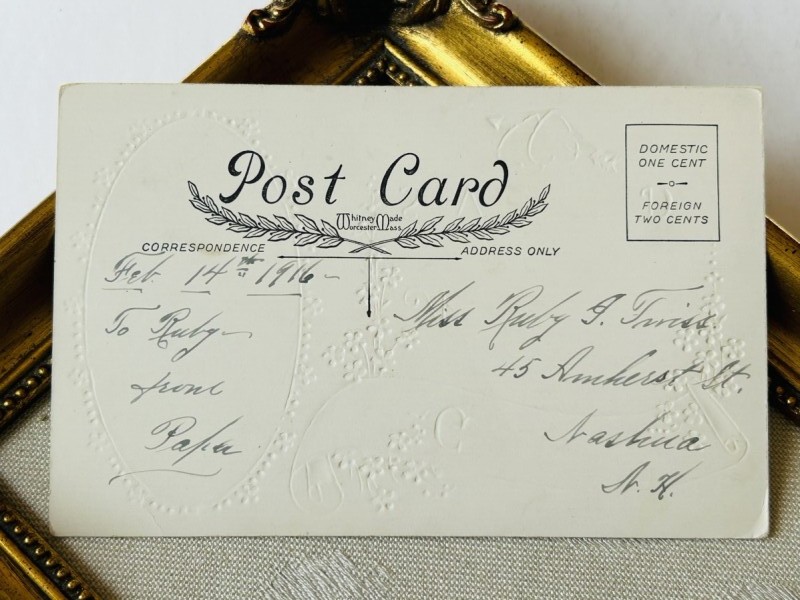 Post Card
Whitney Made
Worcester Mass.
DOMESTIC
ONE CENT
FOREIGN
TWO CENTS
CORRESPONDENCE
ADDRESS ONLY
Feb. 14th 1916
To Ruby
from
Papa
Miss Ruby J. Twiss
45 Amherst St.
Nashua
N. H.